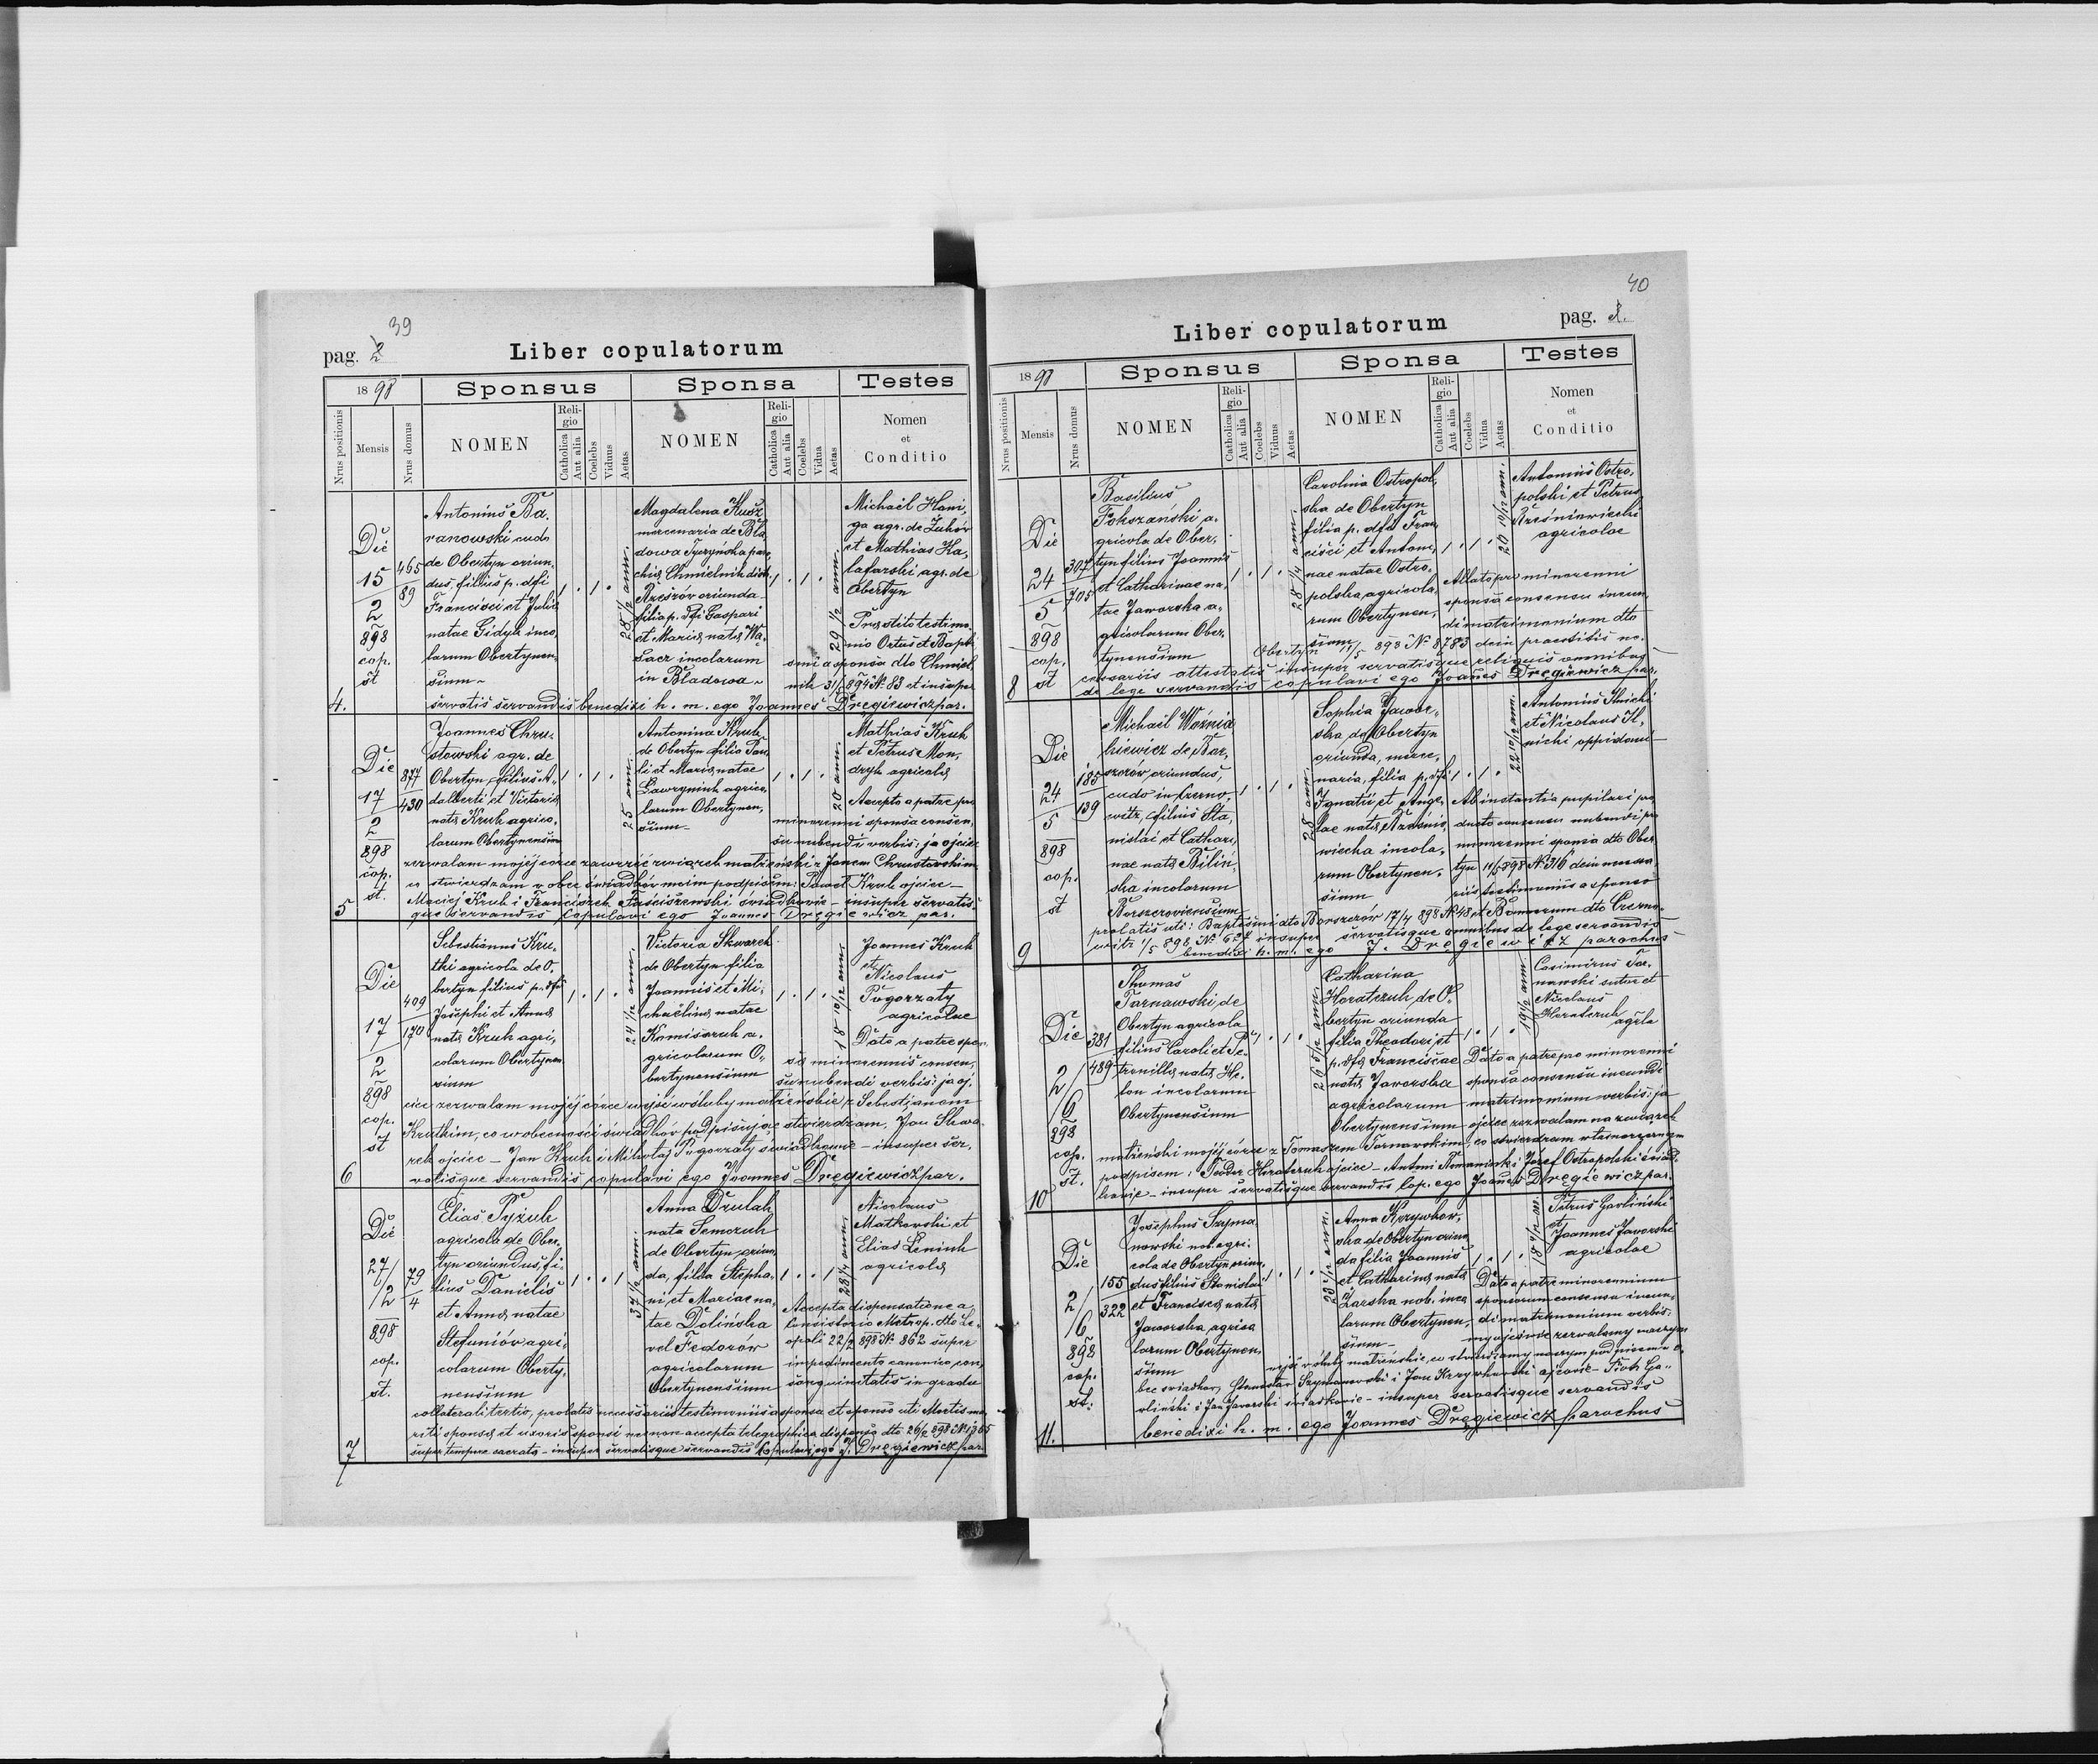 39
pag. 2
Liber copulatorum
1898
Sponsus
Sponsa
Testes
Nrus positionis
Mensis
Nrus domus
NOMEN
Religio
Catholica
Aut alia
Coelebs
Viduus
Aetas
NOMEN
Religio
Catholica
Aut alia
Coelebs
Vidua
Aetas
Nomen
et
Conditio
4.
Die
15
2
898
cop.
st
465
89
Antonius Ba-
ranowski cudo
de Obertyn oriun-
dus, filius p. dfi
Francisci et Juliæ
natae Gidyk inco-
larum Obertynen-
sium
28 1/2 ann.
Magdalena Kusz
mercenaria de Bla-
dowa Tyczyńska paro-
chiæ Chmielnik distr.
Rzeszów oriunda
filia p. dfi Gaspari
et Mariæ natæ Wa-
lacz incolarum
in Bladowa
29 1/2 ann.
Michaël Hani-
ga agr. de Żuków
et Mathias Ka-
lafarski agr. de
Obertyn
Præstito testimo-
nio Ortus et Bapti-
smi a sponsa dto Chmiel-
nik 31/1 894 № 83 et insuper
servatis servandis benedixi h. m. ego Joannes Dręgiewicz par.
5
Die
17
2
898
cop.
st.
877
430
Joannes Chru-
stowski agr. de
Obertyn, filius A-
dalberti et Victoriæ
natæ Kruk agrico-
larum Obertynensium
25 ann.
Antonina Kruk
de Obertyn filia Pau-
li et Mariæ natae
Ławryniuk agrico-
larum Obertynen-
sium
20 ann.
Mathias Kruk
et Petrus Mon-
dryk agricolæ
Accepto a patre pro
minorenni sponsa consen-
su nubendi verbis: ja ojciec
zezwalam mojéj córce zawrzéć związek małżeński z Janem Chrustowskim
co stwierdzam w obec świadków moim podpisem: Paweł Kruk ojciec –
Maciéj Kruk i Franciszek Tuściszewski świadkowie – insuper servatis-
que servandis copulavi ego Joannes Dręgiewicz par.
6
Die
17
2
898
cop.
st
409
170
Sebestianus Kru-
tki agricola de O-
bertyn filius p. dfi
Josephi et Annæ
natæ Kruk agri-
colarum Obertynen-
sium
24 1/12 ann.
Victoria Skwarek
de Obertyn filia
Joannis et Mi-
chaëlinæ natae
Komisaruk a-
gricolarum O-
bertynensium
18 10/12 ann.
Joannes Kruk
et
Nicolaus
Pogorzały
agricolae
Dato a patre spon-
sæ minorennis consen-
su nubendi verbis: ja oj-
ciec zezwalam mojéj córce wejść w śluby małżeńskie z Sebestjanem
Krutkim, co w obecności świadków podpisując stwierdzam, Jan Skwa-
rek ojciec – Jan Kruk i Mikołaj Pogorzały świadkowie – insuper ser-
vatisque servandis copulavi ego Joannes Dręgiewicz par.
7
Die
27/
/2
898
cop.
st.
79
4
Elias Pyżuk
agricola de Ober-
tyn oriundus, fi-
lius Danielis
et Annæ natae
Stefuniów agri-
colarum Oberty-
nensium
37 1/2 ann.
Anna Drulak
nata Semczuk
de Obertyn oriun-
da, filia Stepha-
ni et Mariae na-
tae Dolińska
vel Fedorów
agricolarum
Obertynensium
28 1/4 ann.
Nicolaus
Matkowski et
Elias Leniuk
agricolæ
Accepta dispensatione a
Consistorio Metrop. dto Le-
opoli 22/2 898 № 862 super
impedimento canonico con-
sanguinitatis in gradu
collaterali tertio, probatis necessariis testimoniis a sponsa et sponso uti Mortis ma-
riti sponsæ et uxoris sponsi nec non accepta telegraphica dispensa dto 26/2 898 №
super tempore sacrato – insuper servatisque servandis Copulavi ego J. Dręgiewicz par.
40
pag.
Liber copulatorum
1898
Sponsus
Sponsa
Testes
Nrus positionis
Mensis
Nrus domus
NOMEN
Religio
Catholica
Aut alia
Coelebs
Viduus
Aetas
NOMEN
Religio
Catholica
Aut alia
Coelebs
Vidua
Aetas
Nomen
et
Conditio
8
Die
24
5
898
cop.
st
307
705
Basilius
Fokszański a-
gricola de Ober-
tyn filius Joannis
et Catharinae na-
tae Jaworska a-
gricolarum Ober-
tynensium
28 1/4 ann.
Carolina Ostropol-
ska de Obertyn
filia p. dfi Fran-
cisci et Antoni-
nae natae Ostro-
polska, agricola-
rum Obertynen-
sium
20 10/12 ann.
Antonius Ostro-
polski et Petrus
Rześniowiecki
agricolae
Allato pro minorenni
sponsa consensu ineun-
di matrimonium dto
Obertyn /5 898 № 8783 dein praestitis ne-
cessariis attestatis insuper servatisque reliquis omnibus
de lege servandis copulavi ego Joannes Dręgiewicz par.
9
Die
24
5
898
cop.
st
185
139
Michaël Woźnia-
kiewicz de Bor-
szczów oriundus,
cudo in Czerno-
witz, filius Sta-
nislai et Cathari-
nae natæ Biliń-
ska incolarum
Borszczoviensium
28 ann.
Sophia Jawor-
ska de Obertyn
oriunda, merce-
naria, filia p. dfi
Ignatii et Ange-
lae natæ Rześnio-
wiecka incola-
rum Obertynen-
sium
22 10/12 ann.
Antonius Ilnicki
et Nicolaus Il-
nicki oppidani
Ab instantia pupilari pro-
ducto consensu nubendi pro
minorenni sponsa dto Ober-
tyn 11/5 898 № 316 dein necessa-
riis testimoniis a sponso
prolatis uti: Baptismi dto Borszczów 17/4 898 № 48 et Bannorum dto Czerno-
witz 1/5 898 № insuper servatisque omnibus de lege servandis
benedixi h. m. ego J. Dręgiewicz parochus
10
Die
2/
/6
898
cop.
st.
381
489
Thomas
Tarnawski de
Obertyn agricola
filius Caroli et Pe-
tronillæ natæ He-
lon incolarum
Obertynensium
26 5/12 ann.
Catharina
Horatczuk de O-
bertyn oriunda
filia Theodori et
p. dfæ Franciscae
natæ Jaworska
agricolarum
Obertynensium
19 1/2 ann.
Casimirus Tar-
nawski sutor et
Nicolaus
Horatczuk
agrla
Dato a patre pro minorenni
sponsa consensu ineundi
matrimonium verbis: ja
ojciec zezwalam na związek
małżeński mojéj córce z Tomaszem Tarnawskim, co stwierdzam własnoręcznym
podpisem: Teodor Horatczuk ojciec – Antoni Romaniuk i Józef Ostropolski świad-
kowie – insuper servatisque servandis Cop. ego Joannes Dręgiewicz par.
11.
Die
2/
/6
898
cop.
st.
155
322
Josephus Szyma-
nowski nob. agri-
cola de Obertyn oriun-
dus filius Stanislai
et Franciscæ natæ
Jaworska, agrico-
larum Obertynen-
sium
23 2/12 ann.
Anna Krzywkow-
ska de Obertyn oriun-
da filia Joannis
et Catharinæ natæ
Zarska nob. inco-
larum Obertynen-
sium
Petrus Gawliński
et
Joannes Jaworski
agricolae
Dato a patre minorennium
sponsorum consensu ineun-
di matrimonium verbis:
my ojcowie zezwalamy naszym
wejść w śluby małżeńskie, co stwierdzamy naszym podpisem w o-
bec świadków, Stanisław Szymanowski i Jan Krzywkowski ojcowie – Piotr Ga-
wliński i Jan Jaworski świadkowie – insuper servatisque servandis
benedixi h. m. ego Joannes Dręgiewicz parochus